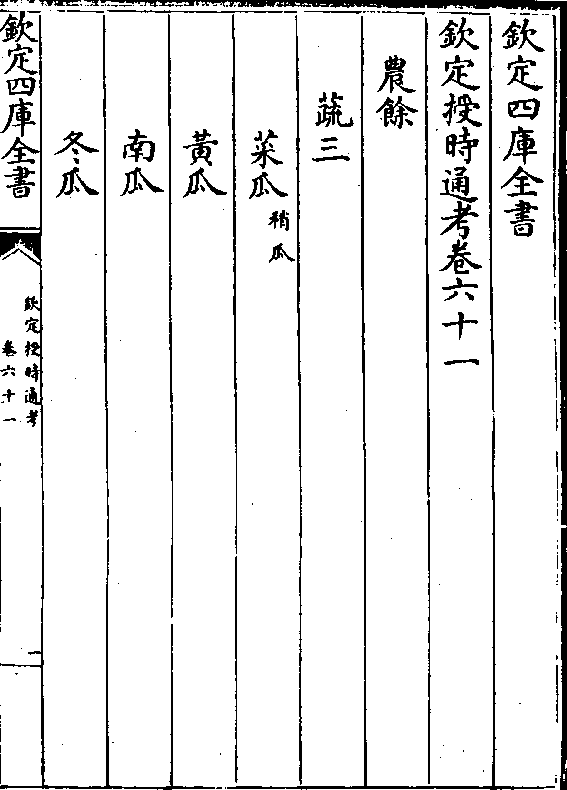 欽定四庫全書
欽定授時通考卷六十一
農餘
蔬三
菜瓜 稍瓜
黃瓜
南瓜
冬瓜
欽定四庫全書
欽定授時通考
卷六十一
一